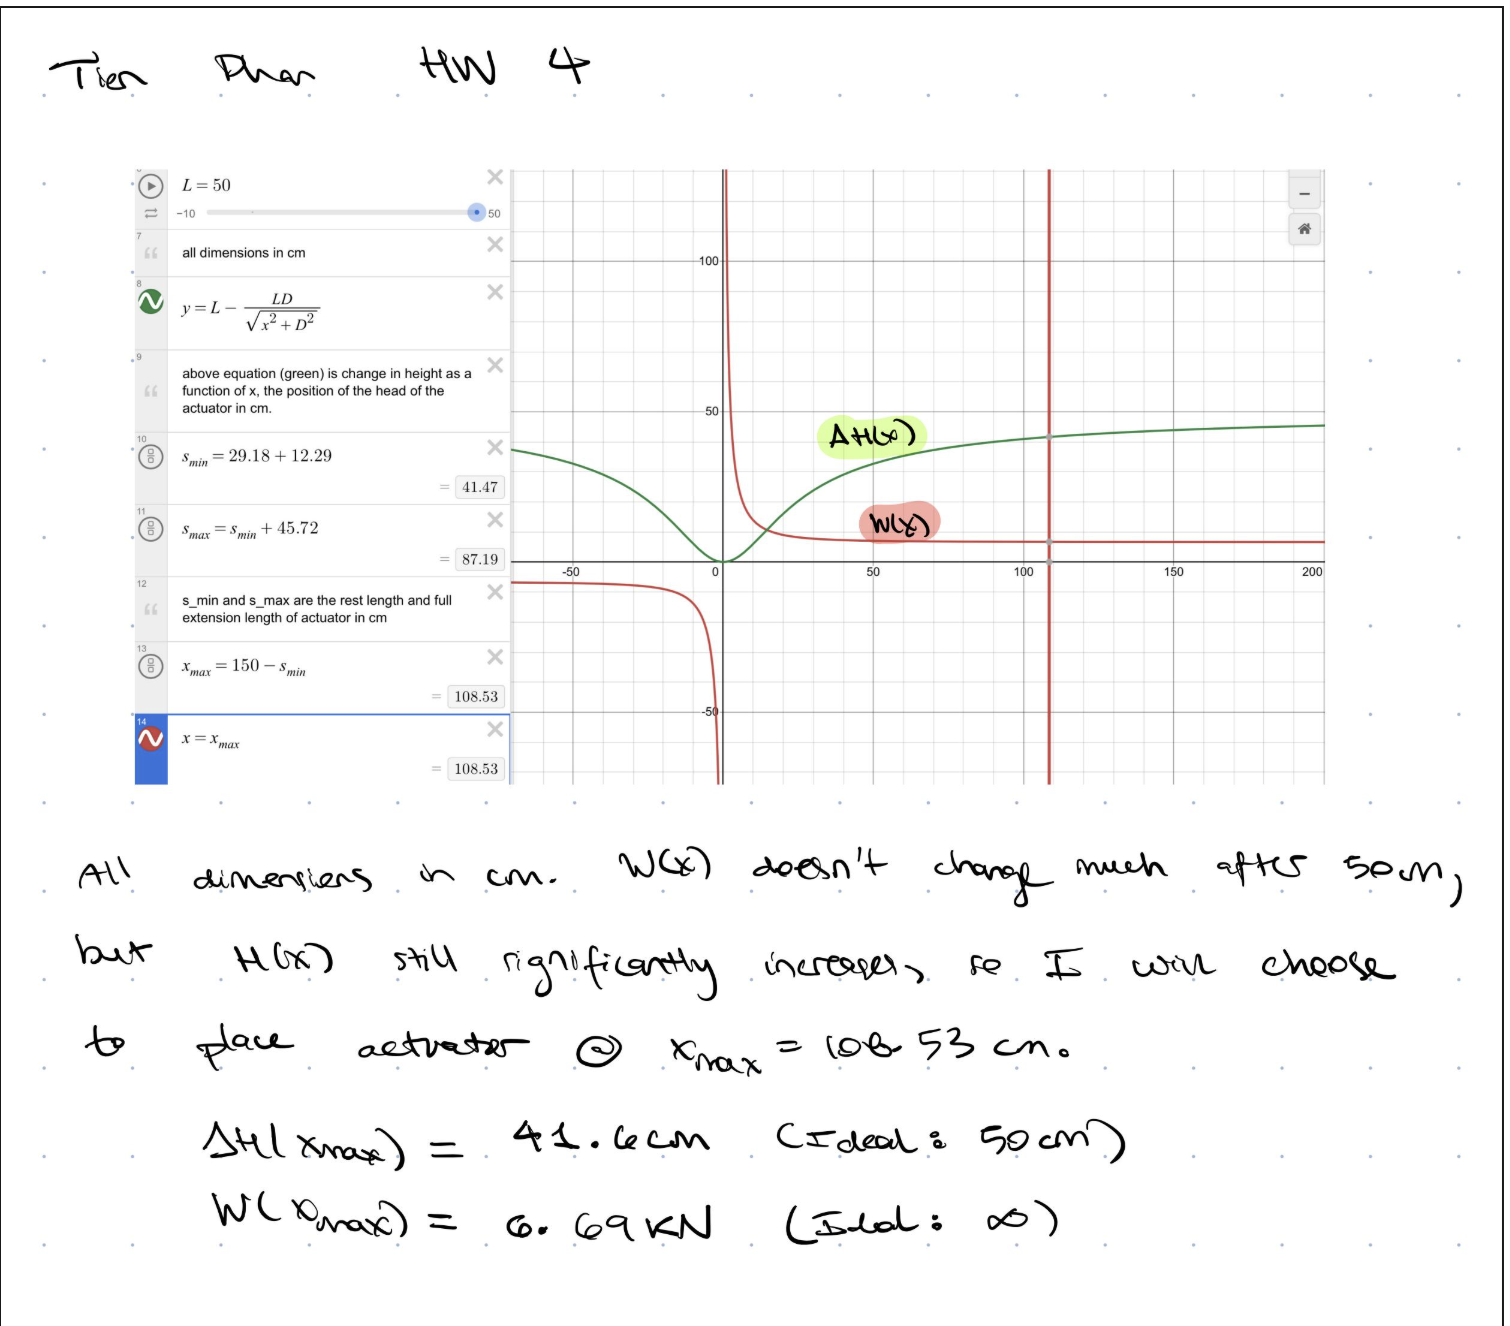 Tien Phan HW 4
L = 50
-10
50
7
all dimensions in cm
8
y = L - \frac{LD}{\sqrt{x^2 + D^2}}
9
above equation (green) is change in height as a
function of x, the position of the head of the
actuator in cm.
10
s_{min} = 29.18 + 12.29
= 41.47
11
s_{max} = s_{min} + 45.72
= 87.19
12
s_min and s_max are the rest length and full
extension length of actuator in cm
13
x_{max} = 150 - s_{min}
= 108.53
14
x = x_{max}
= 108.53
100
50
ΔH(x)
W(x)
-50 0 50 100 150 200
-50
All dimensions in cm. W(x) doesn't change much after 50cm,
but H(x) still significantly increases, so I will choose
to place actuator @ x_{max} = 108.53 cm.
ΔH(x_{max}) = 41.6cm (Ideal: 50cm)
W(x_{max}) = 6.69 KN (Ideal: ∞)